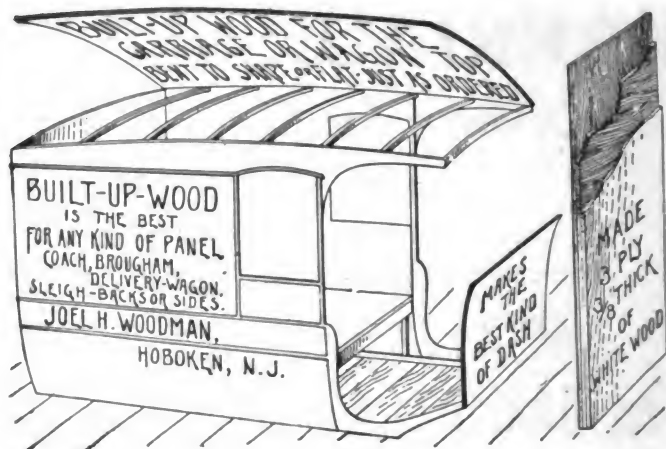 BUILT-UP WOOD FOR THE
CARRIAGE OR WAGGON TOP
BENT TO SHAPE OR FLAT-JUST AS ORDERED
BUILT-UP-WOOD
IS THE BEST
FOR ANY KIND OF PANEL
COACH, BROUGHAM,
DELIVERY-WAGON.
SLEIGH-BACKS OR SIDES.
JOEL H. WOODMAN,
HOBOKEN, N.J.
MAKES
THE
BEST KIND
OF DASH
MADE
3 PLY
3/8" THICK
OF
WHITE WOOD